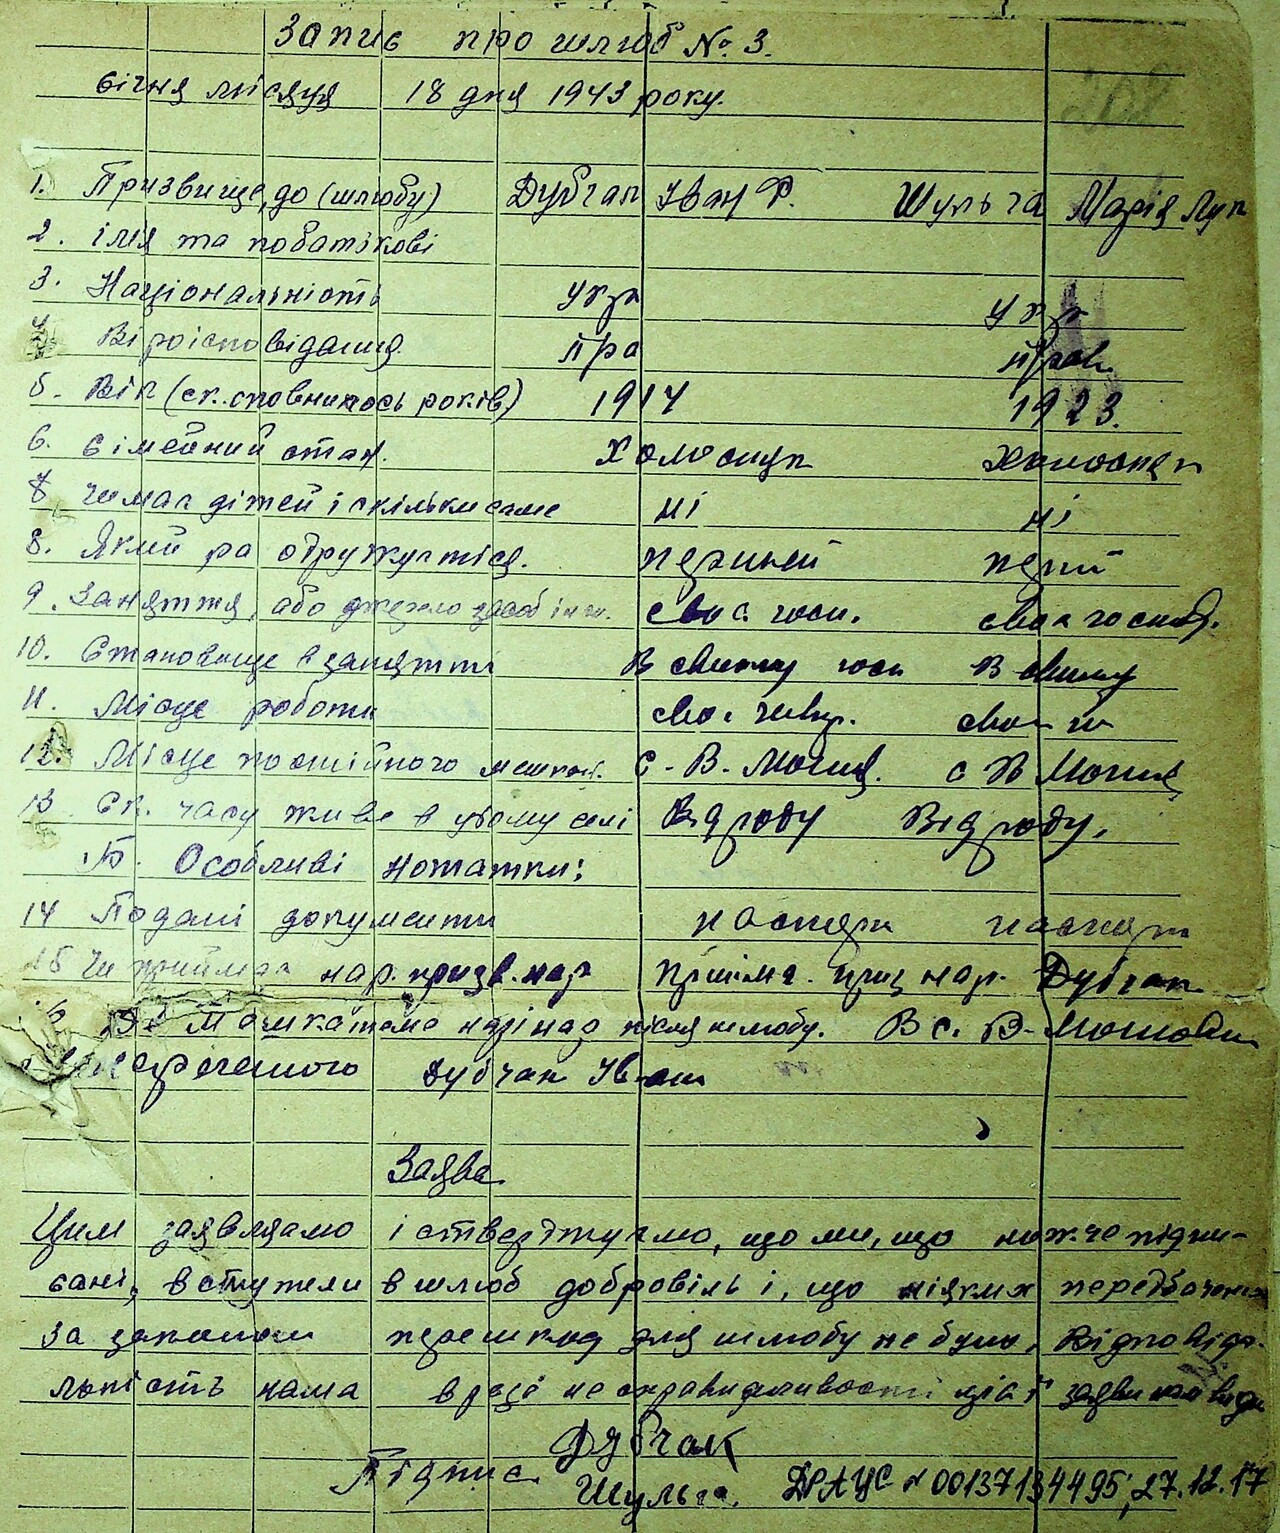 Запис про шлюб № 3.
січня місяця 18 дня 1943 року.
1. Призвище, до (шлюбу) Дубчак Іван Ф. Шульга Марія Лук
2. імя та побатькові
3. Національність Укр Укр
4. Віроісповідання. пра прав.
5. Вік (ск. сповнилось років) 1914 1923.
6. Сімейний стан. Холостяк Холостяк
7 чи має дітей і скільки саме ні ні
8. Який ра одружується. перший перш
9. Заняття, або джерело засоб існ. своє госп. своє господ.
10. Становище в занятті В своему госп В своему
11. Місце роботи своє
12. Місце постійного мешкан. с. В. Могил. с В Могил
13 Ск. часу живе в цьому селі Відроду Відроду.
Б. Особливі нотатки:
14 Подані документи паспорт паспорт
15 Чи приймає нар. призв. нар Прийма. приз нар. Дубчак
16 Де мешкатеме після шлюбу. В с. В-Могилови
нареченого Дубчак Іван
Заява
Цим заявляємо і стверджуємо, що ми, що нижче підпи-
сані, вступели в шлюб добровільі, що ніяких передбачених
за законом перешкод для шлюбу не було. Відповіда-
льність нама в разі несправидливості цієї заяви
Дубчак
Підпис.
Шульга. ДРАЦС № 00137134495, 27.12.17